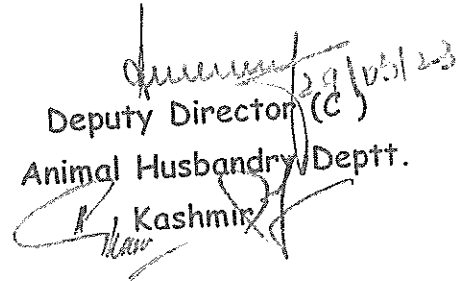 29/05/23
Deputy Director (C )
Animal Husbandry Deptt.
Kashmir